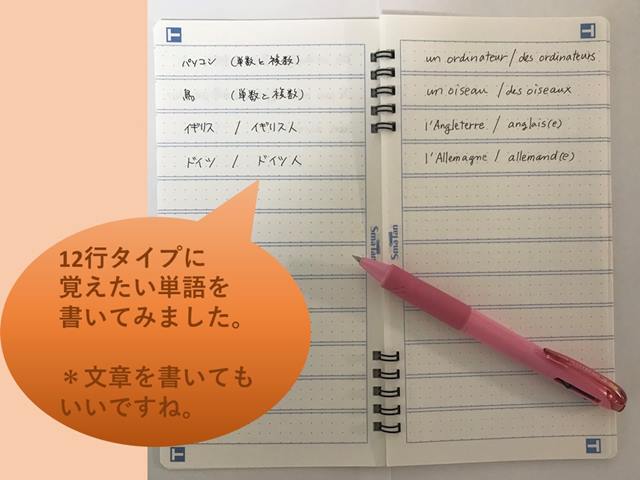 T
パソコン (単数と複数)
鳥 (単数と複数)
イギリス / イギリス人
ドイツ / ドイツ人
SmaTan
T
T
un ordinateur / des ordinateurs
un oiseau / des oiseaux
l'Angleterre / anglais(e)
l'Allemagne / allemand(e)
SmaTan
T
12行タイプに
覚えたい単語を
書いてみました。
＊文章を書いても
いいですね。